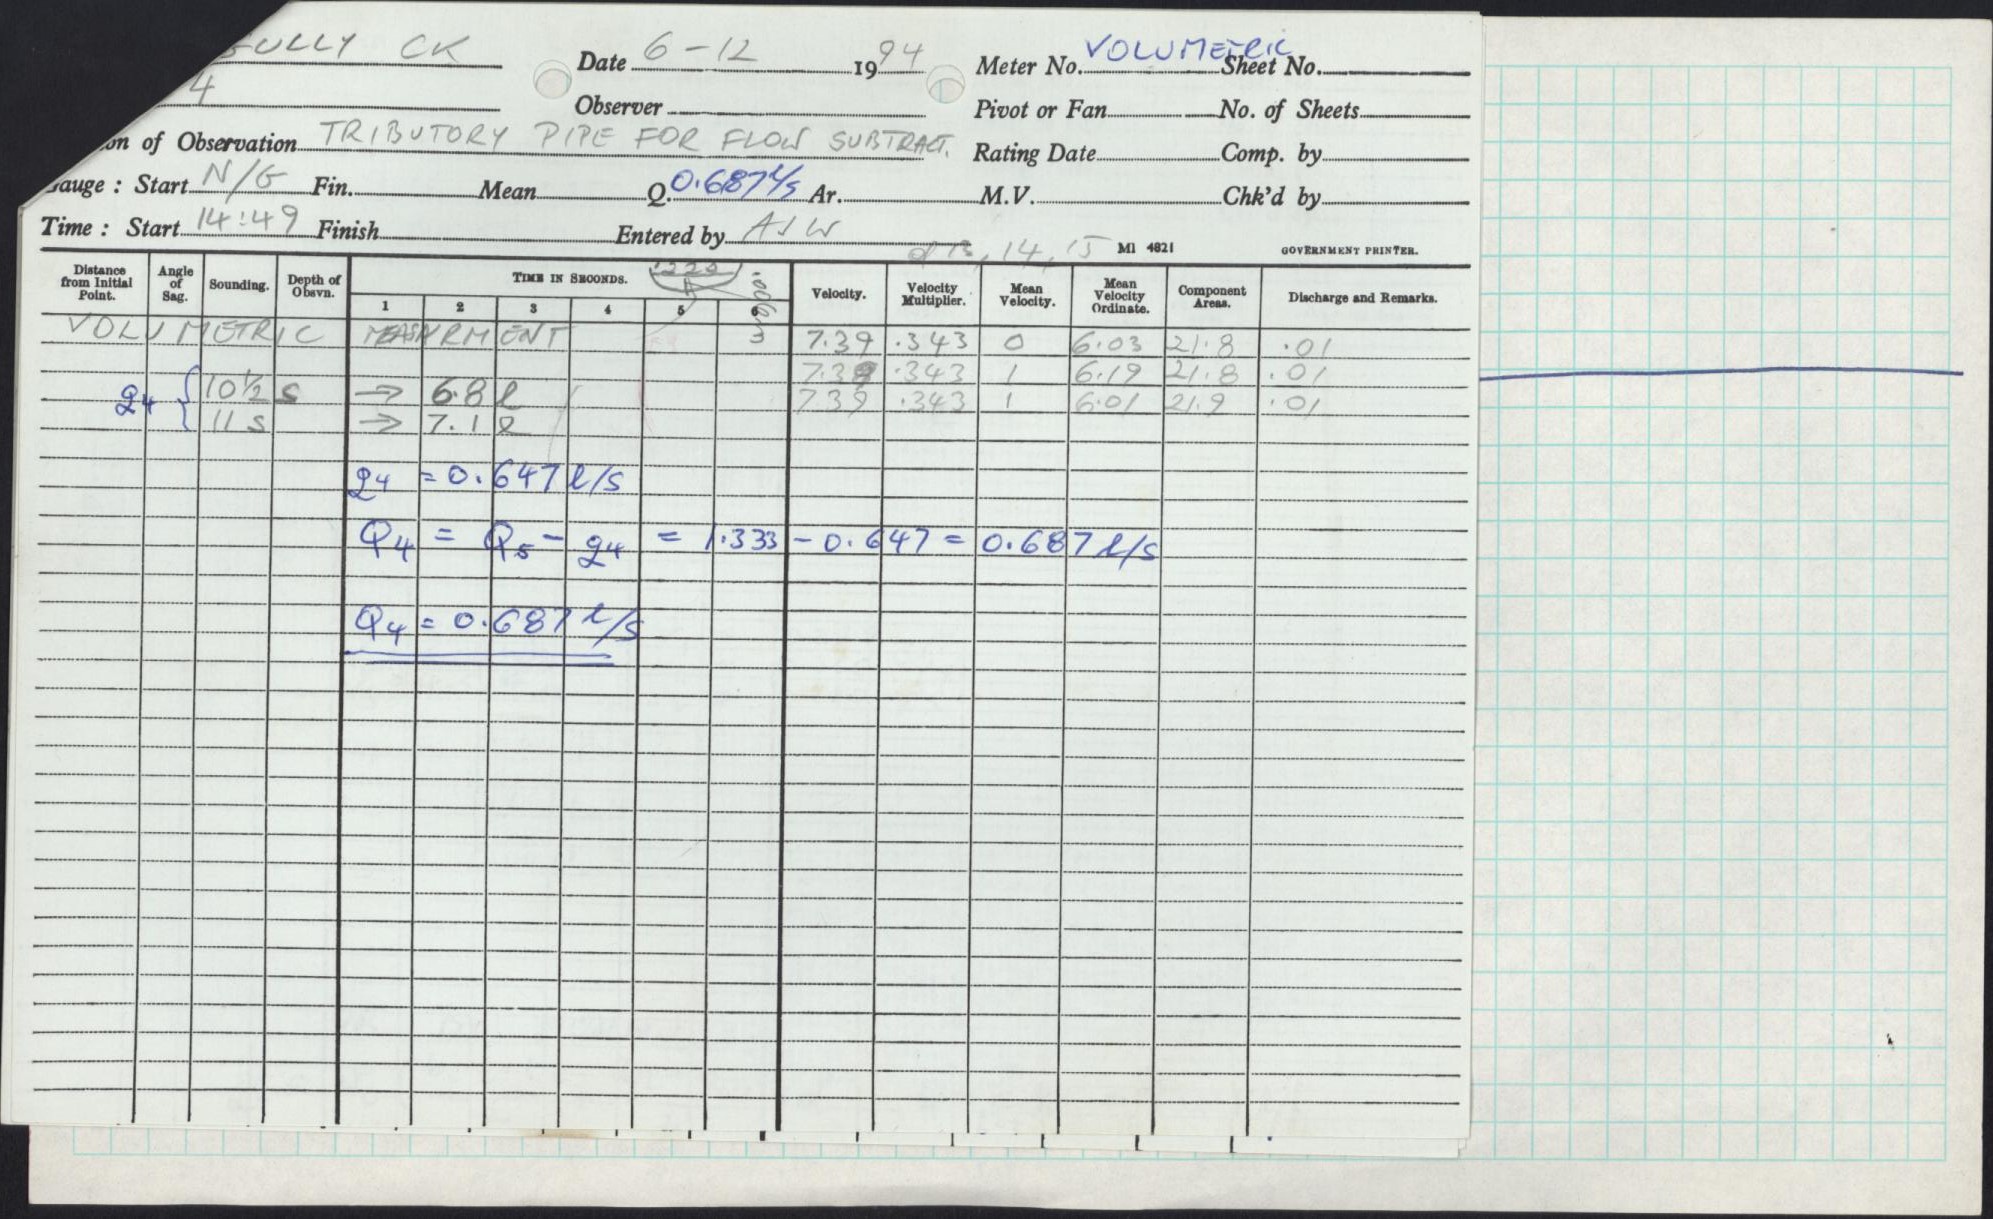 GULLY CK Date 6-12 1994 Meter No. VOLUMETRIC Sheet No.
4 Observer Pivot or Fan No. of Sheets
on of Observation TRIBUTORY PIPE FOR FLOW SUBTRACT. Rating Date Comp. by
Gauge : Start N/G Fin. Mean Q. 0.687 l/s Ar. M.V. Chk'd by
Time : Start 14:49 Finish Entered by AJW 13, 14, 15 M1 4821 GOVERNMENT PRINTER.
Distance from Initial Point. Angle of Sag. Sounding. Depth of Obsvn. TIME IN SECONDS. .220 Velocity. Velocity Multiplier. Mean Velocity. Mean Velocity Ordinate. Component Areas. Discharge and Remarks.
1 2 3 4 5 6
VOLUMETRIC MEASURMENT 7.39 .343 0 6.03 21.8 .01
7.39 .343 1 6.19 21.8 .01
q4 { 10½ s → 6.8 l 7.39 .343 1 6.01 21.9 .01
11 s → 7.1 l
q4 = 0.647 l/s
Q4 = Q5 - q4 = 1.333 - 0.647 = 0.687 l/s
Q4 = 0.687 l/s